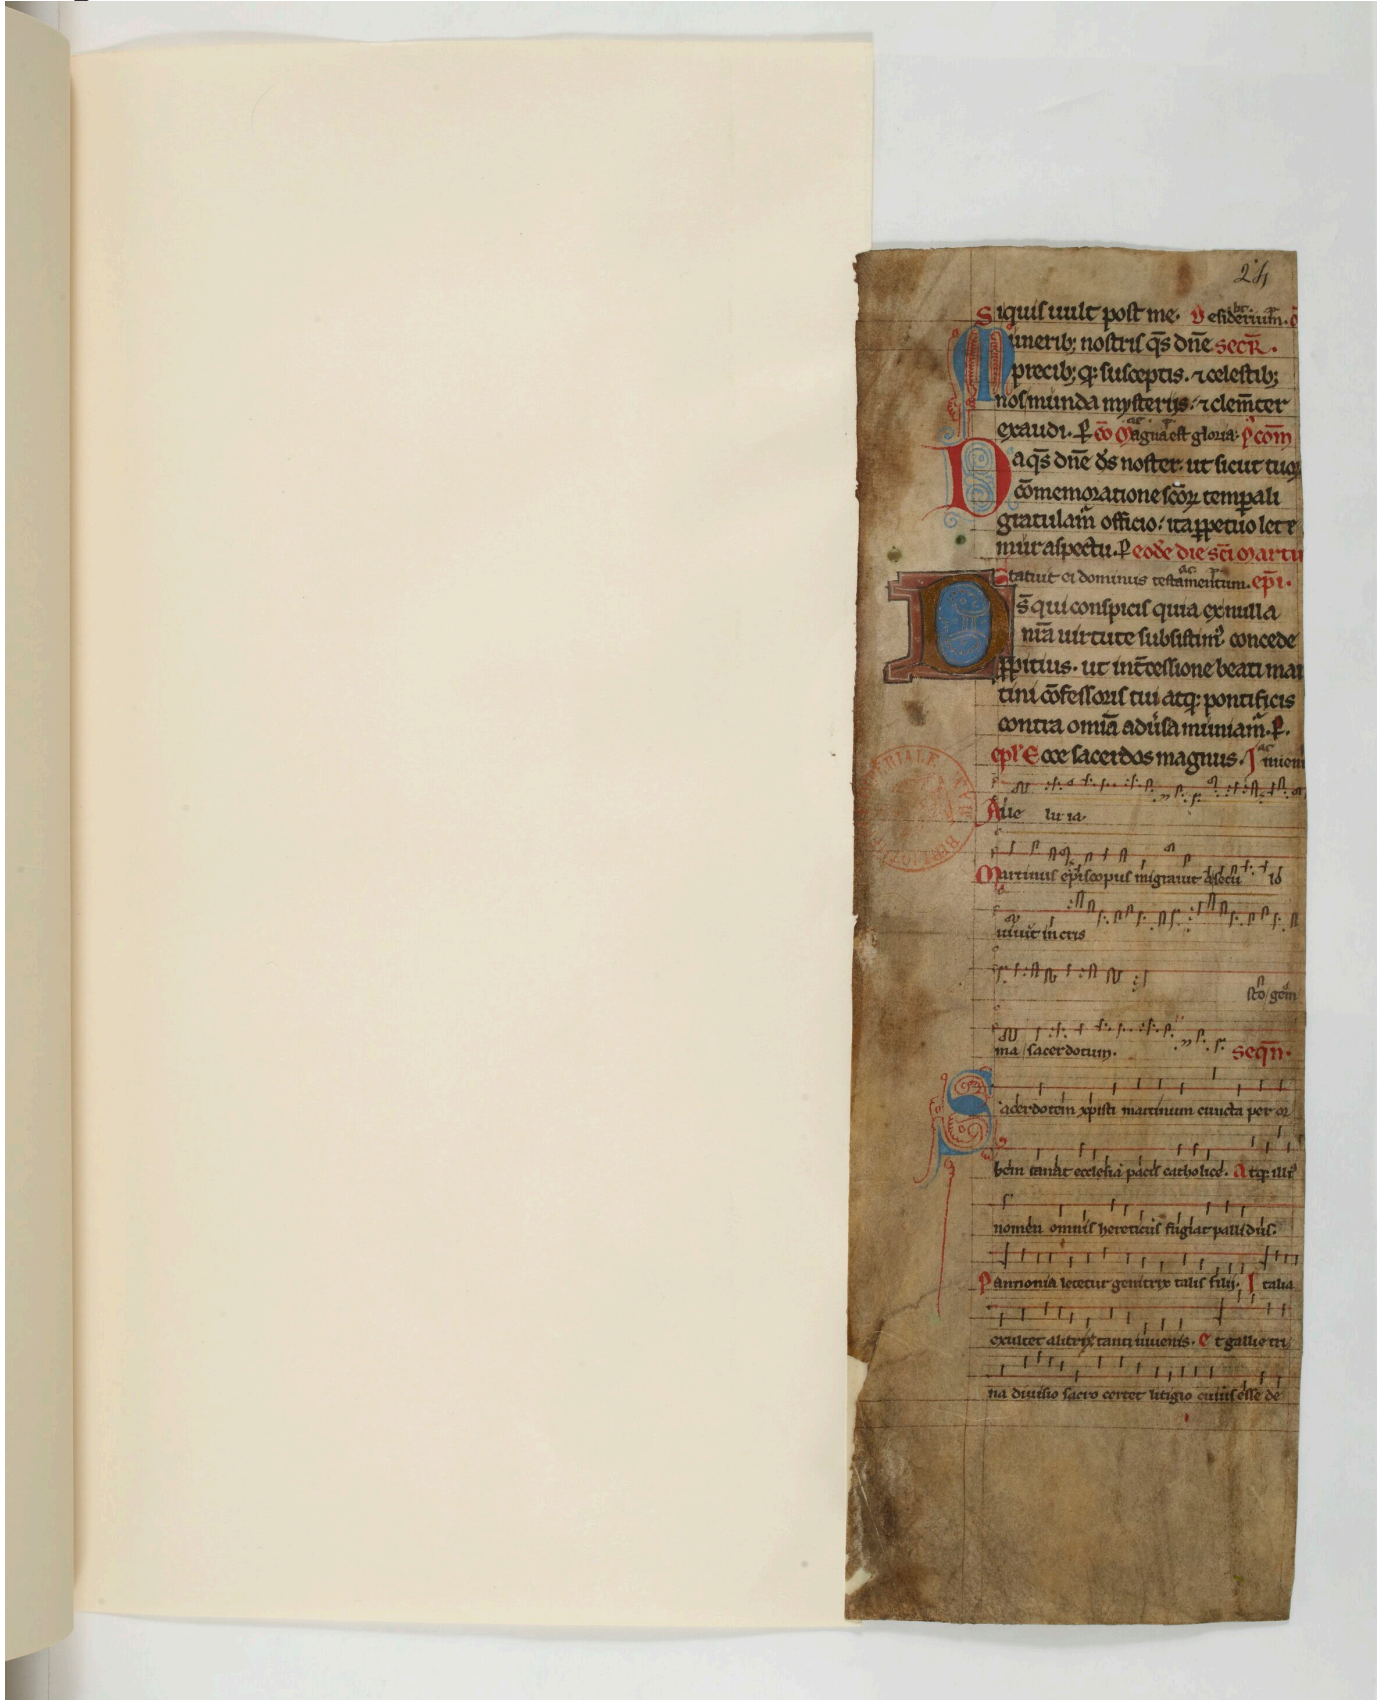 24
Siquis uult post me. Desiderium.
Munerib; nostris q̄s dn̄e secR̄.
precib; q; susceptis. ⁊ celestib;
nos munda mysterijs. ⁊ clem̄ter
exaudi. P̱ cō Magna est gloria. p̄ com̄
Da q̄s dn̄e d̄s noster. ut sicut tuoꝝ
cōmemoratione sc̄oꝝ temp̱ali
gratulam̃ officio. ita p̱petuo lete
mur aspectu. P̱ eodē die sc̄i Marti
Statuit ei dominus testamentum. ep̄i.
D̄s qui conspicis quia ex nulla
nr̄a uirtute subsistim᷒ concede
p̱pitius. ut int̄cessione beati mar
tini cōfessoris tui atq; pontificis
contra omīa adūsa muniam̃. P̱.
ep̄l Ecce sacerdos magnus. Inueni
Alle lu ia.
Martinus ep̄iscopus migrauit a secu lo
uiuit in
sto gem
ma sacerdotum. seqn̄.
Sacerdotem xp̄isti martinum cuncta per or
bem canat ecclesia pacis catholice. Atq; illi᷒
nomen omnis hereticus fugiat pallidus.
Pannonia letetur genitrix talis filii. Italia
exultet alitrix tanti iuuenis. Et gallie tri
na diuisio sacro certet litigio cuius esse de